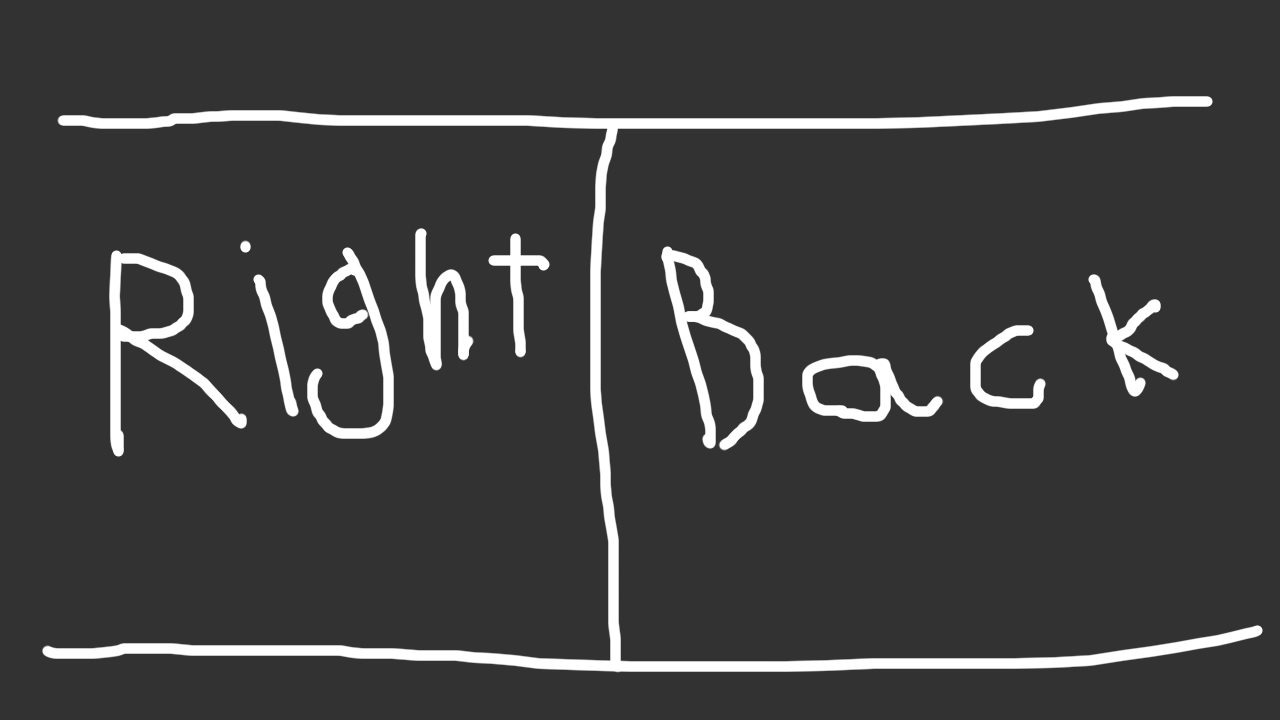 Right Back